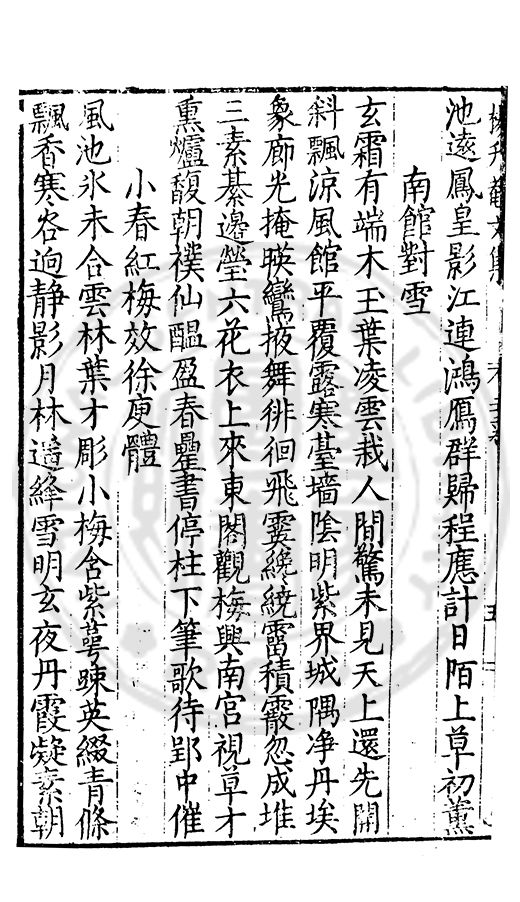 池遠鳳皇影江連鴻鴈群歸程應計日陌上草初薰
南館對雪
玄霜有端木玉葉凌雲栽人間驚未見天上還先開
斜飄涼風館平覆露寒臺墻陰明紫界城隅净丹埃
象廊光掩暎鸞掖舞徘徊飛霙纔繞霤積霰忽成堆
三素綦邊瑩六花衣上來東閣觀梅興南宮視草才
熏爐馥朝襆仙醞盈春罍書停柱下筆歌待郢中催
小春紅梅效徐庾體
風池氷未合雲林葉才彫小梅含紫萼踈英綴青條
飄香寒谷逈静影月林遥絳雪明玄夜丹霞凝素朝